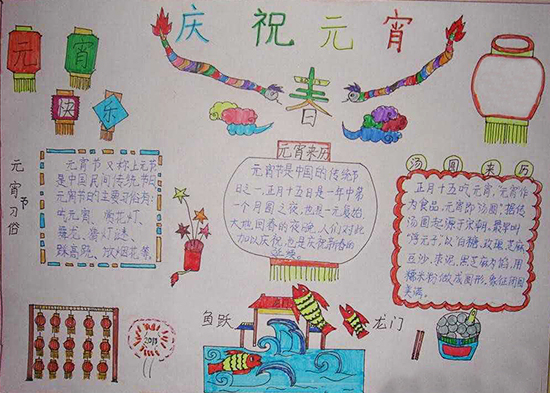 庆祝元宵
元
宵
快
乐
春
元宵节习俗
元宵节又称上元节
是中国民间传统节日
元宵节的主要习俗有:
吃元宵、赏花灯、
舞龙、猜灯谜、
踩高跷、放烟花等。
元宵来历
元宵节是中国的传统节
日之一,正月十五日是一年中第
一个月圆之夜,也是一元复始,
大地回春的夜晚,人们对此
加以庆祝,也是庆祝新春的
延续。
汤圆来历
正月十五吃元宵,“元宵”作
为食品,元宵即“汤圆”,据传
汤圆起源于宋朝,最早叫
“浮元子”,以白糖、玫瑰、芝麻
豆沙、果仁、黑芝麻为馅,用
糯米粉做成圆形,象征团圆
美满。
鱼跃
龙门